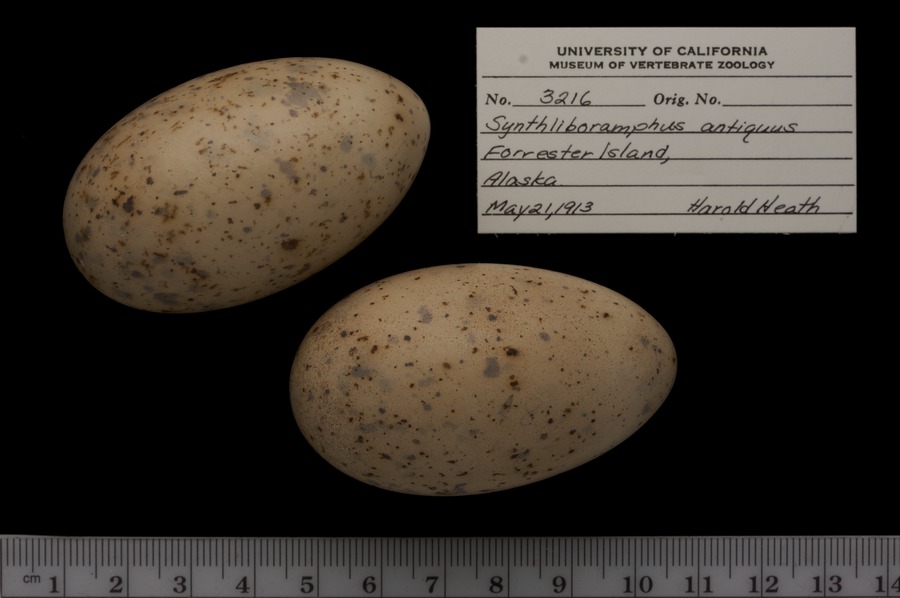 UNIVERSITY OF CALIFORNIA
MUSEUM OF VERTEBRATE ZOOLOGY
No. 3216 Orig. No.
Synthliboramphus antiquus
Forrester Island,
Alaska
May 21, 1913 Harold Heath
cm 1 2 3 4 5 6 7 8 9 10 11 12 13 14